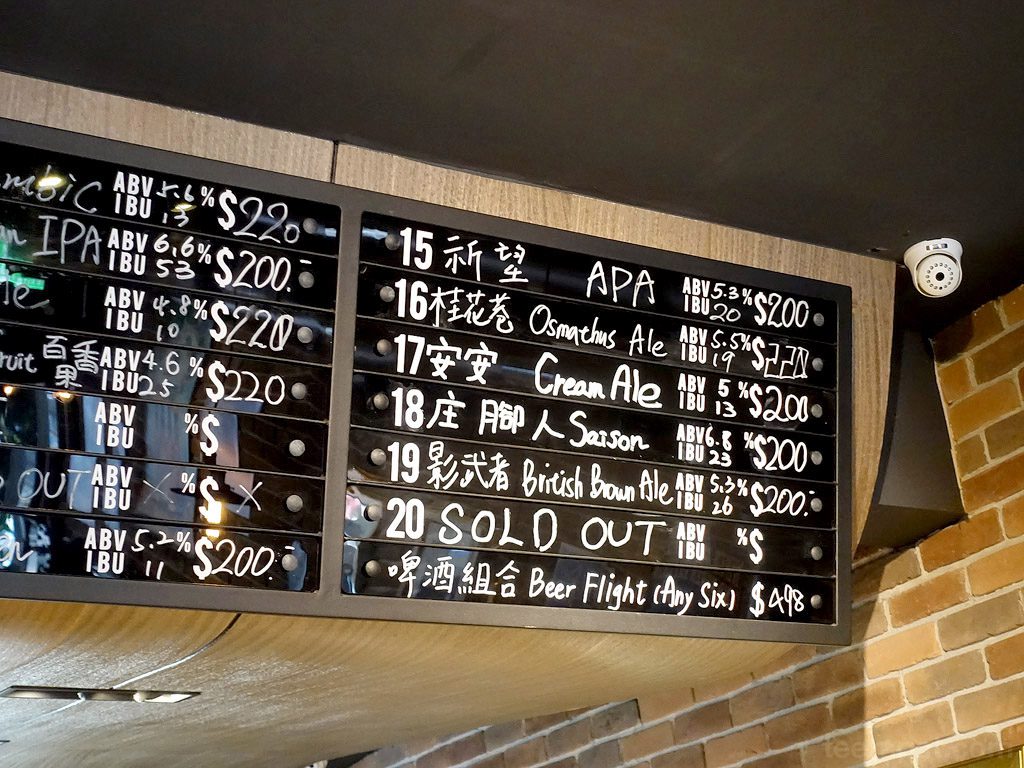 mbic ABV 5.6% IBU 13 $220
IPA ABV 6.6% IBU 53 $200.-
ABV 4.8% IBU 10 $220
ruit 百香果 ABV 4.6 IBU 25 $220
ABV % IBU $
OUT ABV X % IBU $ X
ABV 5.2% IBU 11 $200.-
15 祈望 APA ABV 5.3% IBU 20 $200
16 桂花巷 Osmathus Ale ABV 5.5% IBU 19 $220
17 安安 Cream Ale ABV 5 % IBU 13 $200
18 庄腳人 Saison ABV 6.8 % IBU 23 $200
19 影武者 British Brown Ale ABV 5.3% IBU 26 $200.-
20 SOLD OUT ABV % IBU $
啤酒組合 Beer Flight (Any Six) $498